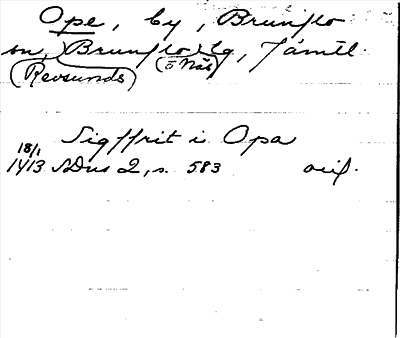 Ope, by, Brunflo
sn, Brunflo tg, Jämtl.
(Revsunds) (o Näs)
Sigffrit i Opa
18/1
1413 SDns 2, s. 583 orig.